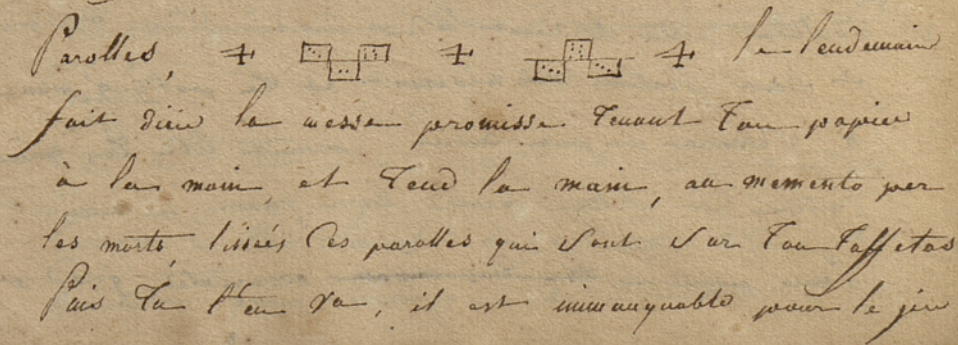 Parolles, + + + le lendemain
fait dire la messe promisse tenant ton papier
à la main et tend la main, au memento per
les morts, lisses ces parolles qui sont sur ton taffetas
Puis tu t'en va, il est immanquable pour le jeu